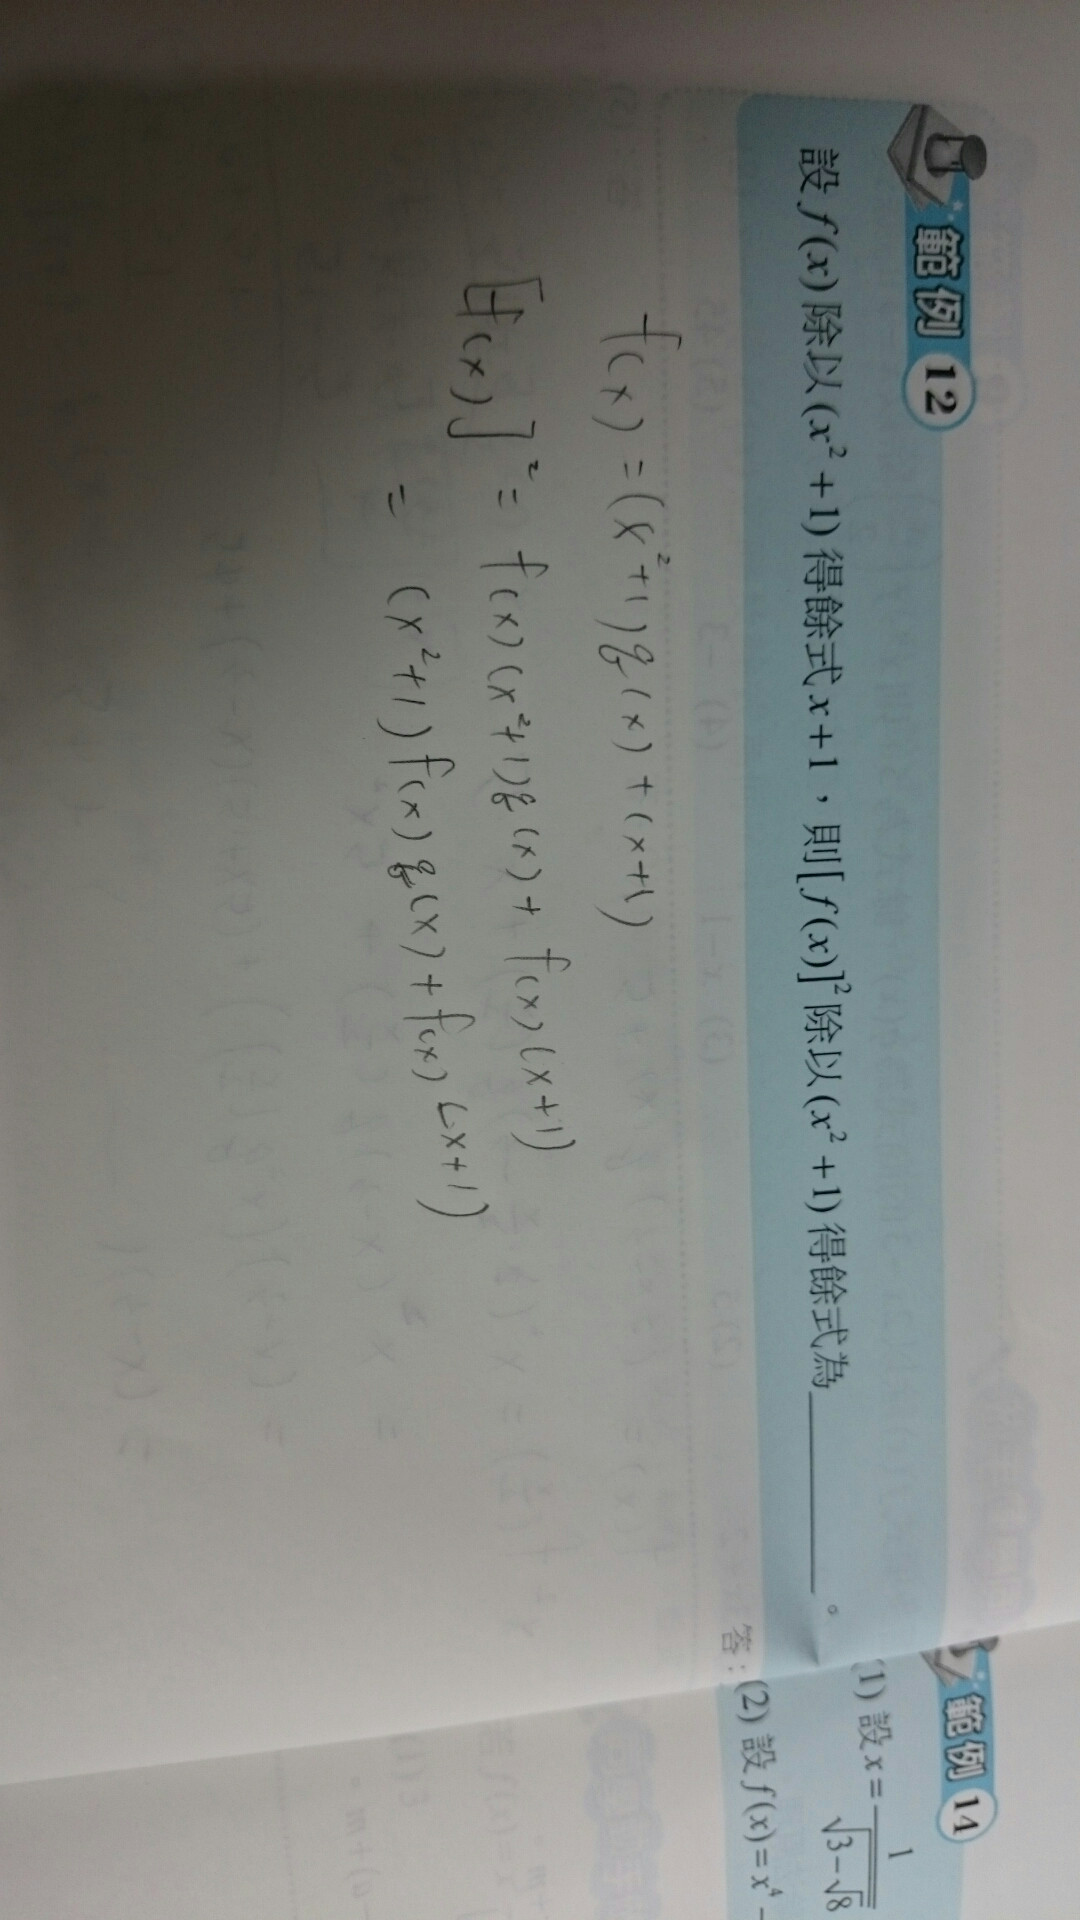 範例 12
設 f(x) 除以 (x²+1) 得餘式 x+1，則 [f(x)]² 除以 (x²+1) 得餘式為________。
f(x) = (x²+1)q(x) + (x+1)
[f(x)]² = f(x)(x²+1)q(x) + f(x)(x+1)
= (x²+1)f(x)q(x) + f(x)(x+1)
範例 14
(1) 設 x = 1/√(3-√8)
(2) 設 f(x) = x⁴ -
答：